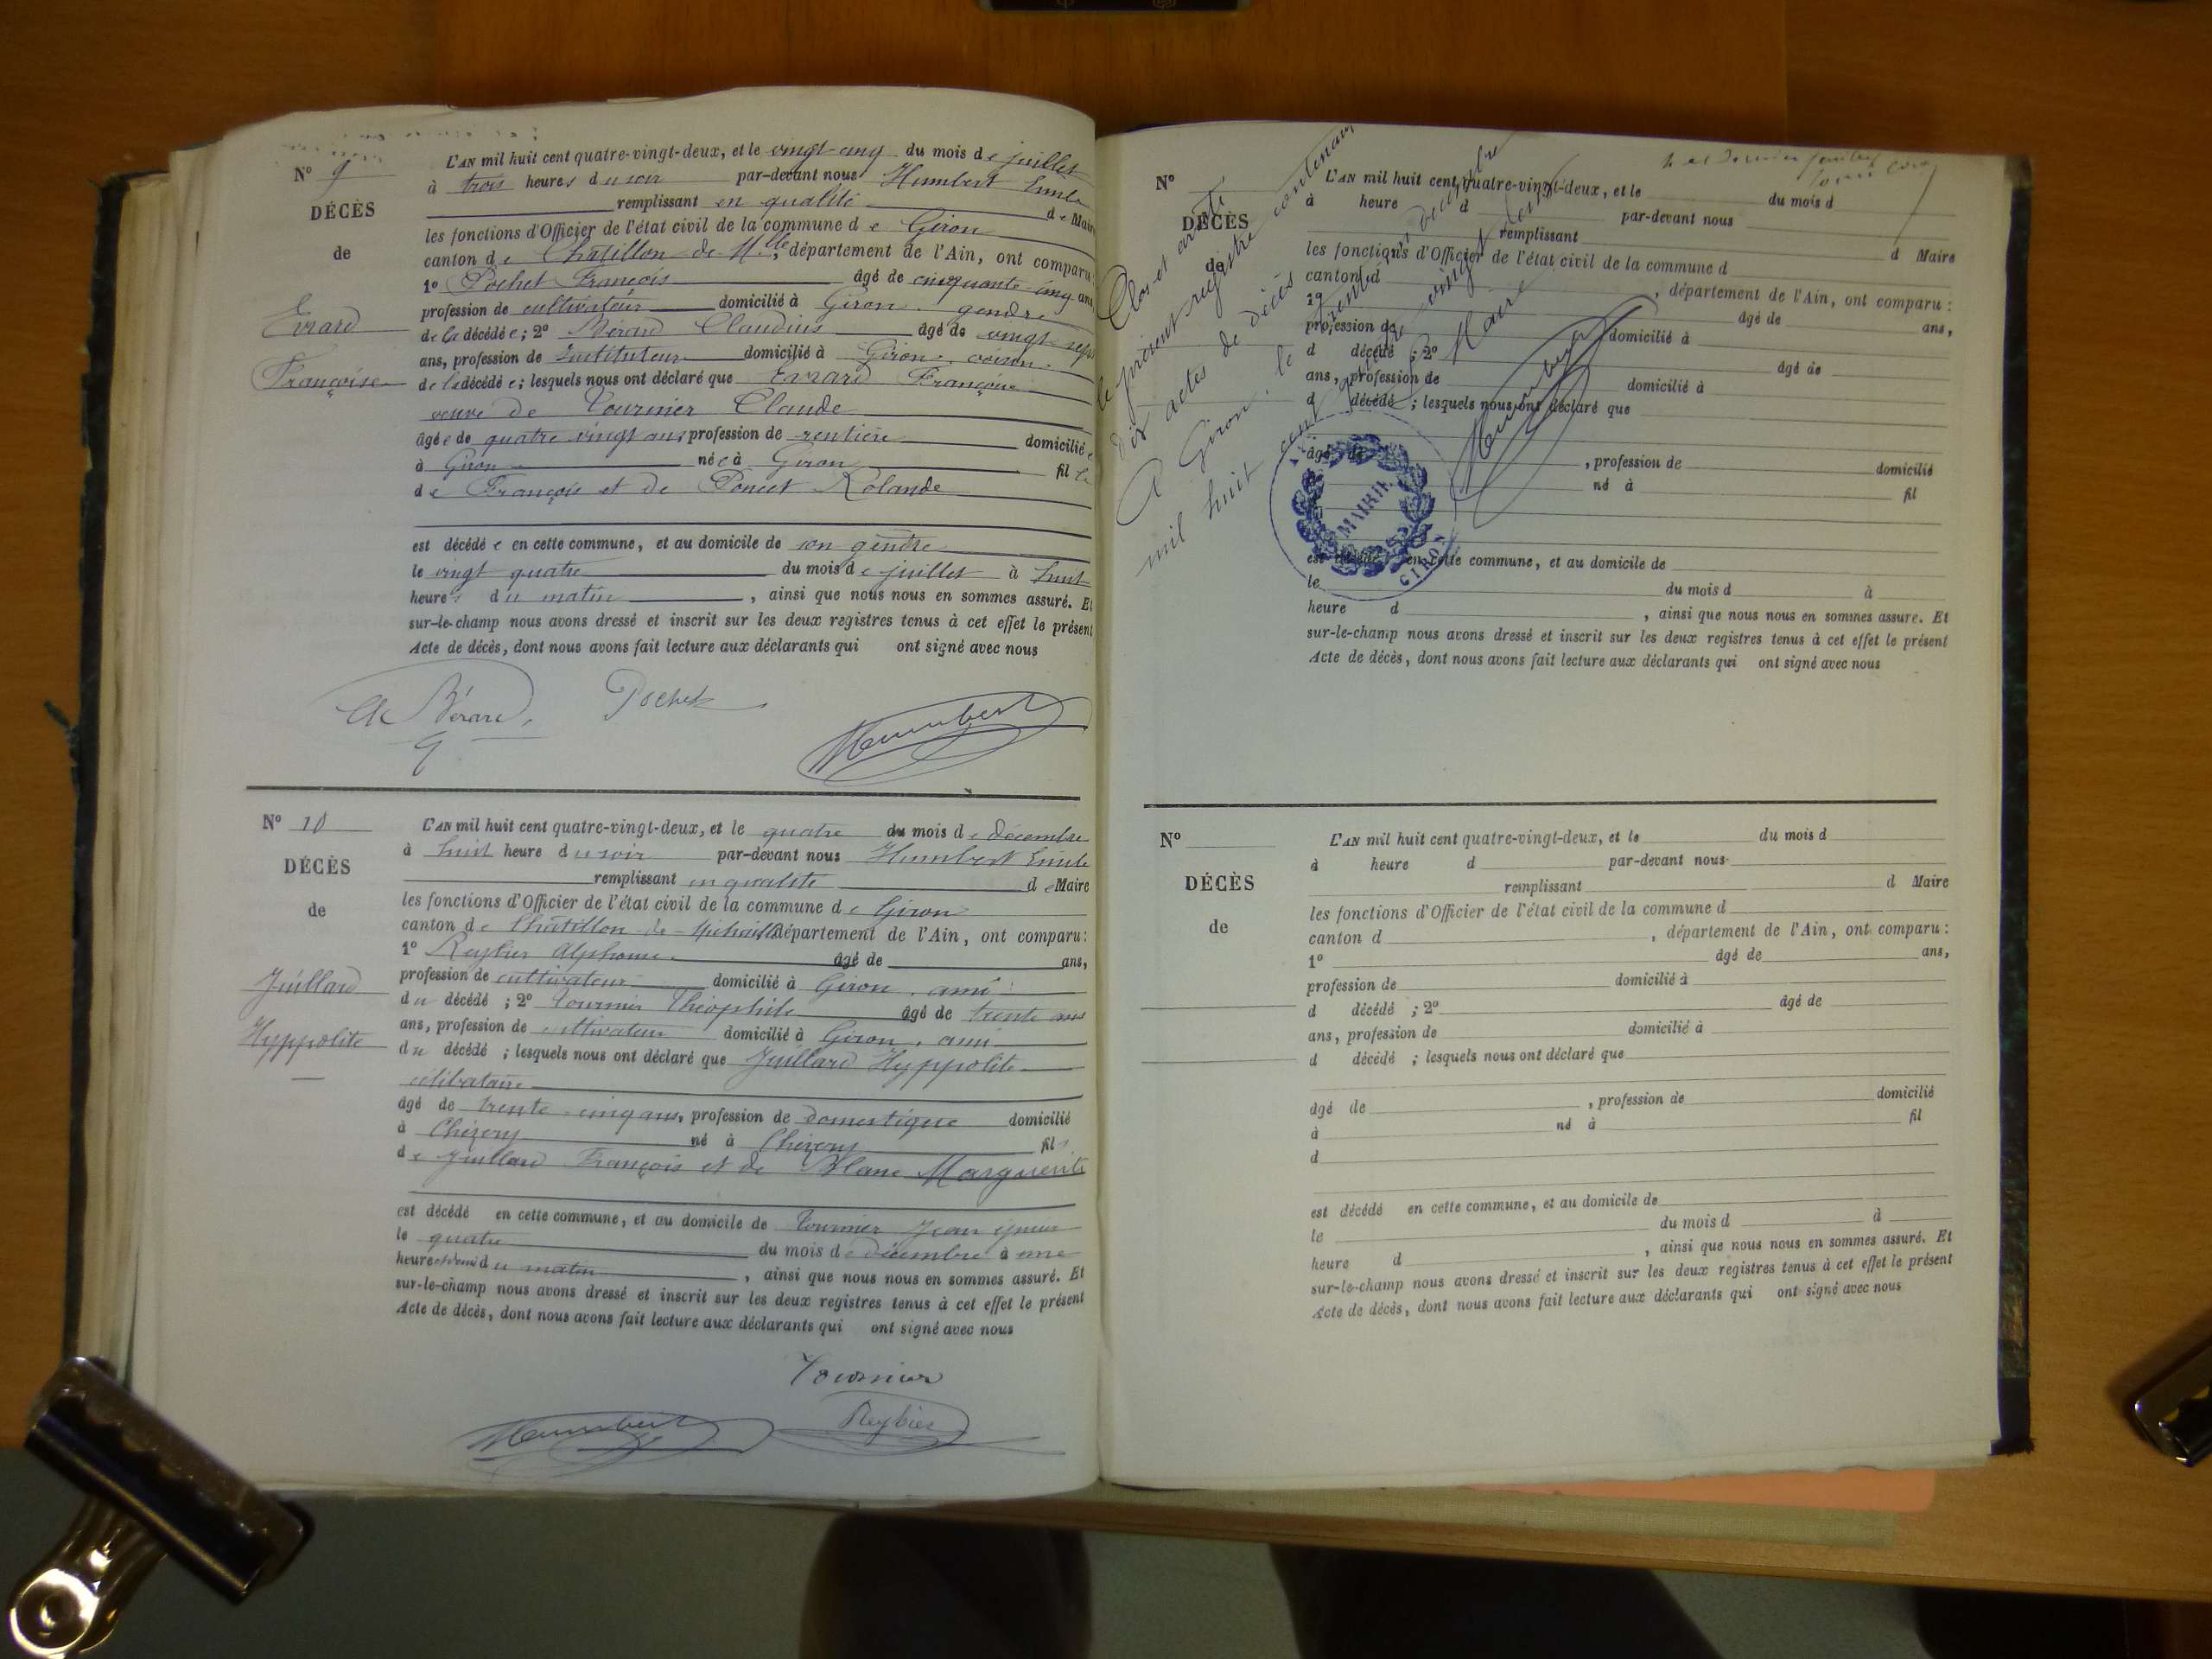 N° 9
DÉCÈS
de
Evrard
Françoise
L'AN mil huit cent quatre-vingt-deux, et le vingt-cinq du mois de juillet
à trois heures du soir par-devant nous Humbert Emile
remplissant en qualité de Maire
les fonctions d'Officier de l'état civil de la commune de Giron
canton de Châtillon-de-M.lle, département de l'Ain, ont comparu:
1° Pochet François âgé de cinquante-cinq ans
profession de cultivateur domicilié à Giron, gendre
de la décédée; 2° Bérard Claudius âgé de vingt-sept
ans, profession de Instituteur domicilié à Giron, voisin
de la décédée; lesquels nous ont déclaré que Evrard Françoise
veuve de Tournier Claude
âgée de quatre vingt ans profession de rentière domiciliée
à Giron née à Giron fille
de François et de Poncet Rolande
est décédée en cette commune, et au domicile de son gendre
le vingt quatre du mois de juillet à huit
heures du matin, ainsi que nous nous en sommes assuré. Et
sur-le-champ nous avons dressé et inscrit sur les deux registres tenus à cet effet le présent
Acte de décès, dont nous avons fait lecture aux déclarants qui ont signé avec nous
Cl Bérard Pochet
Humbert
N° 10
DÉCÈS
de
Juillard
Hyppolite
L'AN mil huit cent quatre-vingt-deux, et le quatre du mois de décembre
à huit heure du soir par-devant nous Humbert Emile
remplissant en qualité de Maire
les fonctions d'Officier de l'état civil de la commune de Giron
canton de Châtillon-de-Michaille département de l'Ain, ont comparu:
1° Reybier Alphonse âgé de ans,
profession de cultivateur domicilié à Giron, ami
du décédé; 2° Tournier Théophile âgé de trente ans
ans, profession de cultivateur domicilié à Giron, ami
du décédé; lesquels nous ont déclaré que Juillard Hyppolite
célibataire
âgé de trente-cinq ans, profession de domestique domicilié
à Chézery né à Chézery fils
de Juillard François et de Blanc Marguerite
est décédé en cette commune, et au domicile de Tournier Jean
le quatre du mois de décembre à une
heure et demi du matin, ainsi que nous nous en sommes assuré. Et
sur-le-champ nous avons dressé et inscrit sur les deux registres tenus à cet effet le présent
Acte de décès, dont nous avons fait lecture aux déclarants qui ont signé avec nous
Tournier
Humbert Reybier
Clos et arrêté
le présent registre contenant
dix actes de décès
A Giron, le trente et un décembre
mil huit cent quatre vingt deux
Le Maire
Humbert
MAIRIE
GIRON
N°
DÉCÈS
de
L'AN mil huit cent quatre-vingt-deux, et le du mois d
à heure d par-devant nous
remplissant d Maire
les fonctions d'Officier de l'état civil de la commune d
canton d , département de l'Ain, ont comparu:
1° âgé de ans,
profession de domicilié à
d décédé ; 2° âgé de
ans, profession de domicilié à
d décédé ; lesquels nous ont déclaré que
âgé de , profession de domicilié
à né à fil
d
est décédé en cette commune, et au domicile de
le du mois d à
heure d , ainsi que nous nous en sommes assuré. Et
sur-le-champ nous avons dressé et inscrit sur les deux registres tenus à cet effet le présent
Acte de décès, dont nous avons fait lecture aux déclarants qui ont signé avec nous
N°
DÉCÈS
de
L'AN mil huit cent quatre-vingt-deux, et le du mois d
à heure d par-devant nous
remplissant d Maire
les fonctions d'Officier de l'état civil de la commune d
canton d , département de l'Ain, ont comparu:
1° âgé de ans,
profession de domicilié à
d décédé ; 2° âgé de
ans, profession de domicilié à
d décédé ; lesquels nous ont déclaré que
âgé de , profession de domicilié
à né à fil
d
est décédé en cette commune, et au domicile de
le du mois d à
heure d , ainsi que nous nous en sommes assuré. Et
sur-le-champ nous avons dressé et inscrit sur les deux registres tenus à cet effet le présent
Acte de décès, dont nous avons fait lecture aux déclarants qui ont signé avec nous